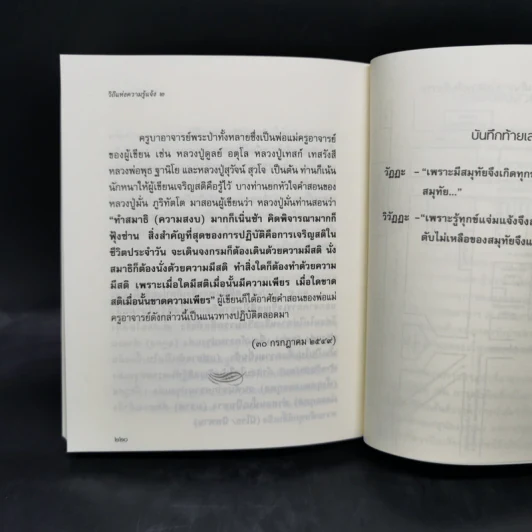 วิถีแห่งความรู้แจ้ง ๒
ครูบาอาจารย์พระป่าทั้งหลายซึ่งเป็นพ่อแม่ครูอาจารย์
ของผู้เขียน เช่น หลวงปู่ดูลย์ อตุโล หลวงปู่เทสก์ เทสรังสี
หลวงพ่อพุธ ฐานิโย และหลวงปู่สุวัจน์ สุวโจ เป็นต้น ท่านก็เน้น
นักหนาให้ผู้เขียนเจริญสติคือรู้ไว้ บางท่านยกหัวใจคำสอนของ
หลวงปู่มั่น ภูริทัตโต มาสอนผู้เขียนว่า หลวงปู่มั่นท่านสอนว่า
“ทำสมาธิ (ความสงบ) มากก็เนิ่นช้า คิดพิจารณามากก็
ฟุ้งซ่าน สิ่งสำคัญที่สุดของการปฏิบัติคือการเจริญสติใน
ชีวิตประจำวัน จะเดินจงกรมก็ต้องเดินด้วยความมีสติ นั่ง
สมาธิก็ต้องนั่งด้วยความมีสติ ทำสิ่งใดก็ต้องทำด้วยความ
มีสติ เพราะเมื่อใดมีสติเมื่อนั้นมีความเพียร เมื่อใดขาด
สติเมื่อนั้นขาดความเพียร” ผู้เขียนก็ได้อาศัยคำสอนของพ่อแม่
ครูอาจารย์ดังกล่าวนี้เป็นแนวทางปฏิบัติตลอดมา
(๓๐ กรกฎาคม ๒๕๔๙)
๒๒๐
บันทึกท้ายเล
วัฏฏะ -“เพราะมีสมุทัยจึงเกิดทุก
สมุทัย...”
วิวัฏฏะ -“เพราะรู้ทุกข์แจ่มแจ้งจึง
ดับไม่เหลือของสมุทัยจึง